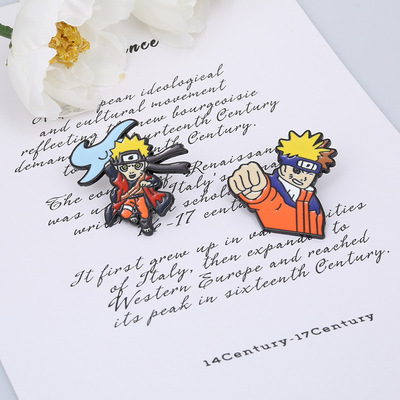 ence
pean ideological
and cultural movement
reflecting
new bourgeoisie
deman
rteenth Century
The co
Renaissan
was u
Italy's
schol
wri
e-17 century
It first grew up in va
ities
of Italy, then expande
to
Western Europe and reached
its peak in sixteenth Century.
14Century-17Century